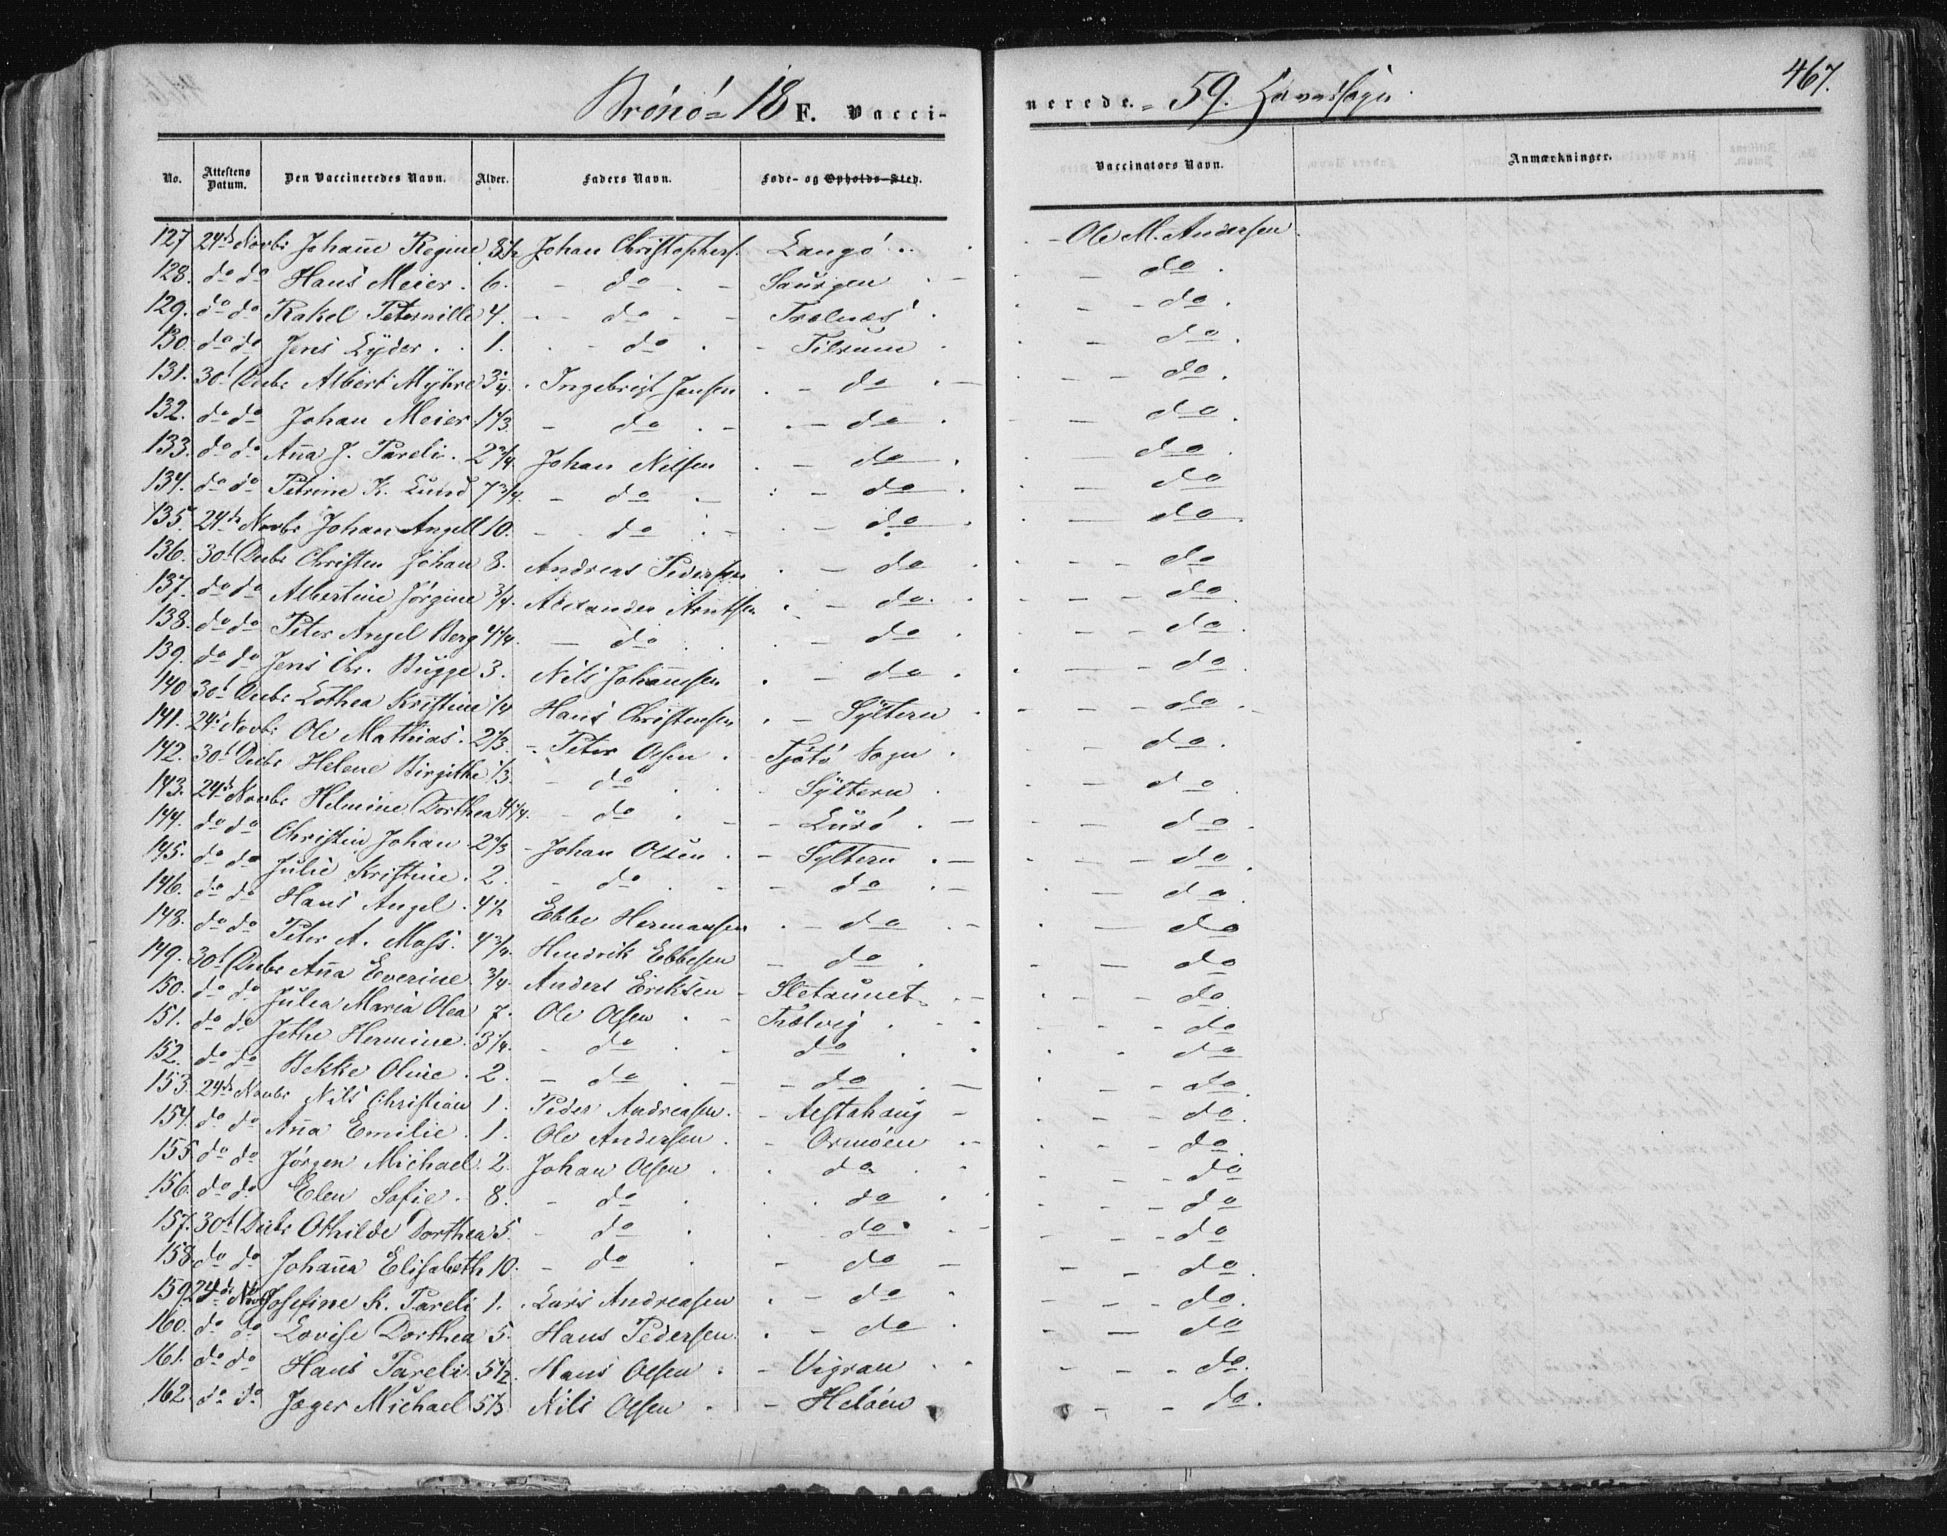 467.
Brönö = 18 F. Vaccinerede. = 59. Hovedsogn.
No. Attestens Datum. Den Vaccineredes Navn. Alder. Faders Navn. Føde- og Opholds-Sted. Vaccinators Navn. Anmærkninger.
127 24de Novbr Johañe Regine 8½ Johan Christophers. Langö Ole M. Andersen
128. do do Hans Meier. 6. do do
129. do do Rakel Peternille 4. do do
130. do do Jens Lyder. 1. do Tilrum do
131. 30t Decbr Albert Myhre 3/4. Ingebrigt Jensen do do
132. do do Johan Meier 1/3. do do do
133. do do Aña J. Pareli. 2 3/4. Johan Nilsen do do
134. do do Petrine K. Lund 7 3/4. do do do
135. 24de Novbr Johan Angell 10. do do do
136. 30t Decbr Christen Johan 8. Andreas Pedersen do do
137. do do Albertine Jörgine 3/4. Alexander Arntsen do do
138. do do Peter Angel Berg 4 1/4. do do do
139. do do Jens Chr. Bugge 3. Nils Johañesen do do
140 30t Decbr Lothea Kristine 1/4 Hans Christensen Syltern do
141. 24de Novbr Ole Mathias. 2 1/3. Peter Olsen Tjötö Sogn do
142. 30t Decbr Helene Birgithe 1/3. do Syltern do
143. 24de Novbr Helmine Dorthea 4 1/4. do Lurö do
144. do do Christin Johan 2 1/3 Johan Olsen Syltern do
145. do do Julie Kristine. 2. do do do
146. do do Hans Angel. 4½ Ebbe Hermansen do do
148. do do Peter A. Moss. 4 3/4. Hendrik Ebbesen do do
149. 30t Decbr Aña Everine 3/4. Anders Eriksen Sletaunet do
150. do do Julea Maria Olea 7. Ole Olsen Trælvig do
151. do do Jethe Hermine. 3 1/4. do do do
152. do do Bekke Oline. 2. do do do
153. 24de Novbr Nils Christian 1. Peder Andreasen. Alstahoug do
154. do do Aña Emilie. 1. Ole Andersen. Ormöen do
155. do do Jörgen Michael 2. Johan Olsen do do
156. do do Elen Sofie. 8. do do do
157. 30t Decbr Othilde Dorthea 5. do do do
158. do do Johaña Elisabeth 10. do do do
159. 24de Novbr Josefine K. Pareli 1. Lars Andreasen do do
160. do do Lovise Dorthea 5. Hans Pedersen. do do
161. do do Hans Pareli 5½. Hans Olsen Vigran do
162. do do Jæger Michael 5 1/3 Nils Olsen Helöen do